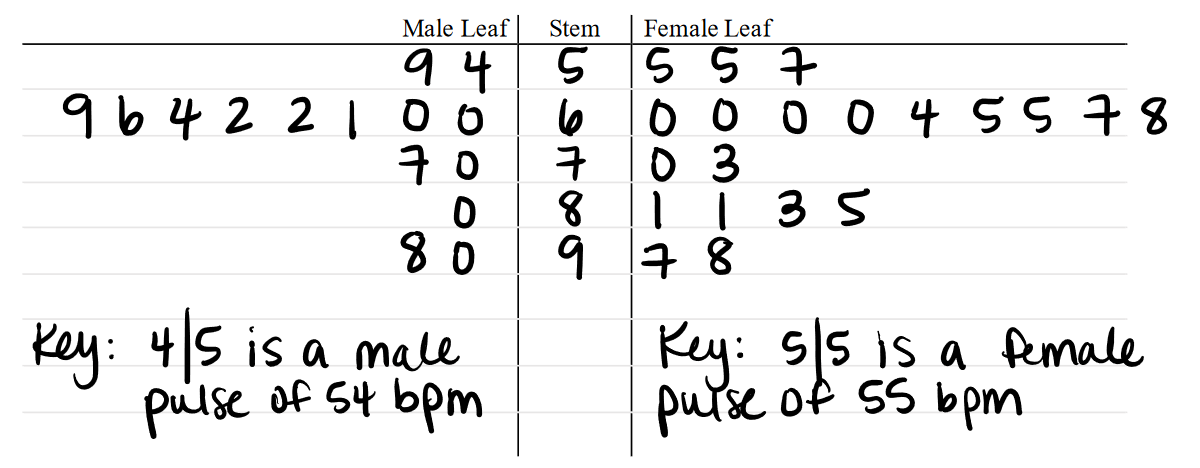 Male Leaf Stem Female Leaf
9 4 5 5 5 7
9 6 4 2 2 1 0 0 6 0 0 0 0 4 5 5 7 8
7 0 7 0 3
0 8 1 1 3 5
8 0 9 7 8
Key: 4|5 is a male
pulse of 54 bpm
Key: 5|5 is a female
pulse of 55 bpm